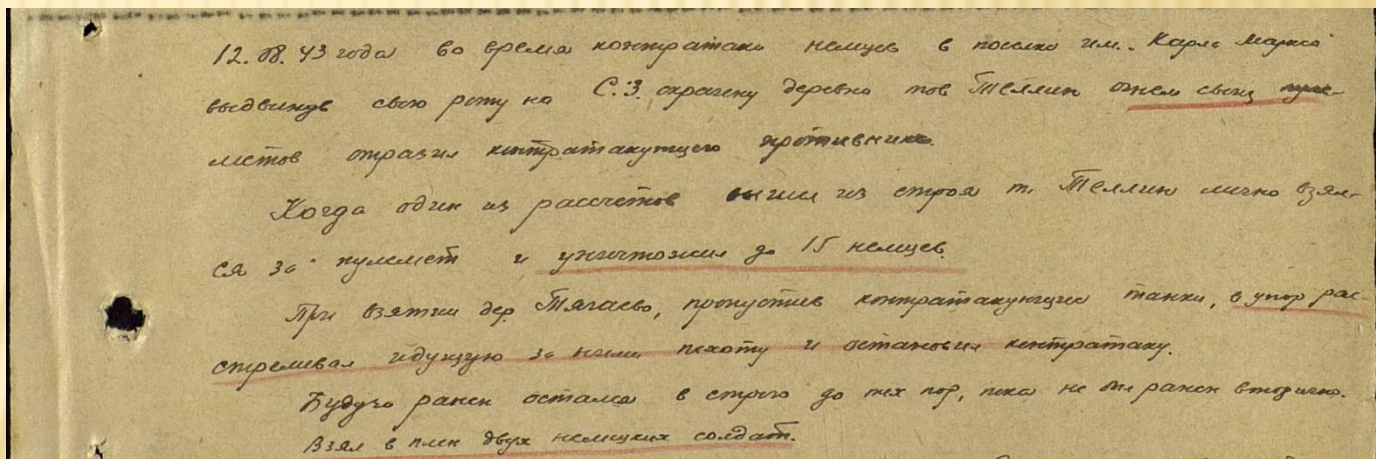 12.08.43 года во время контратаки немцев в поселке им. Карла Маркса
выдвинув свою роту на С.З. окраину деревни тов Теллин огнем своих пуле-
метов отразил контратакующего противника.
Когда один из рассчетов вышел из строя т. Теллин лично взял-
ся за пулемет и уничтожил до 15 немцев.
При взятии дер. Тягаево, пропустив контратакующие танки, в упор рас-
стреливал идущую за ними пехоту и остановил контратаку.
Будучи ранен остался в строю до тех пор, пока не был ранен вторично.
Взял в плен двух немецких солдат.